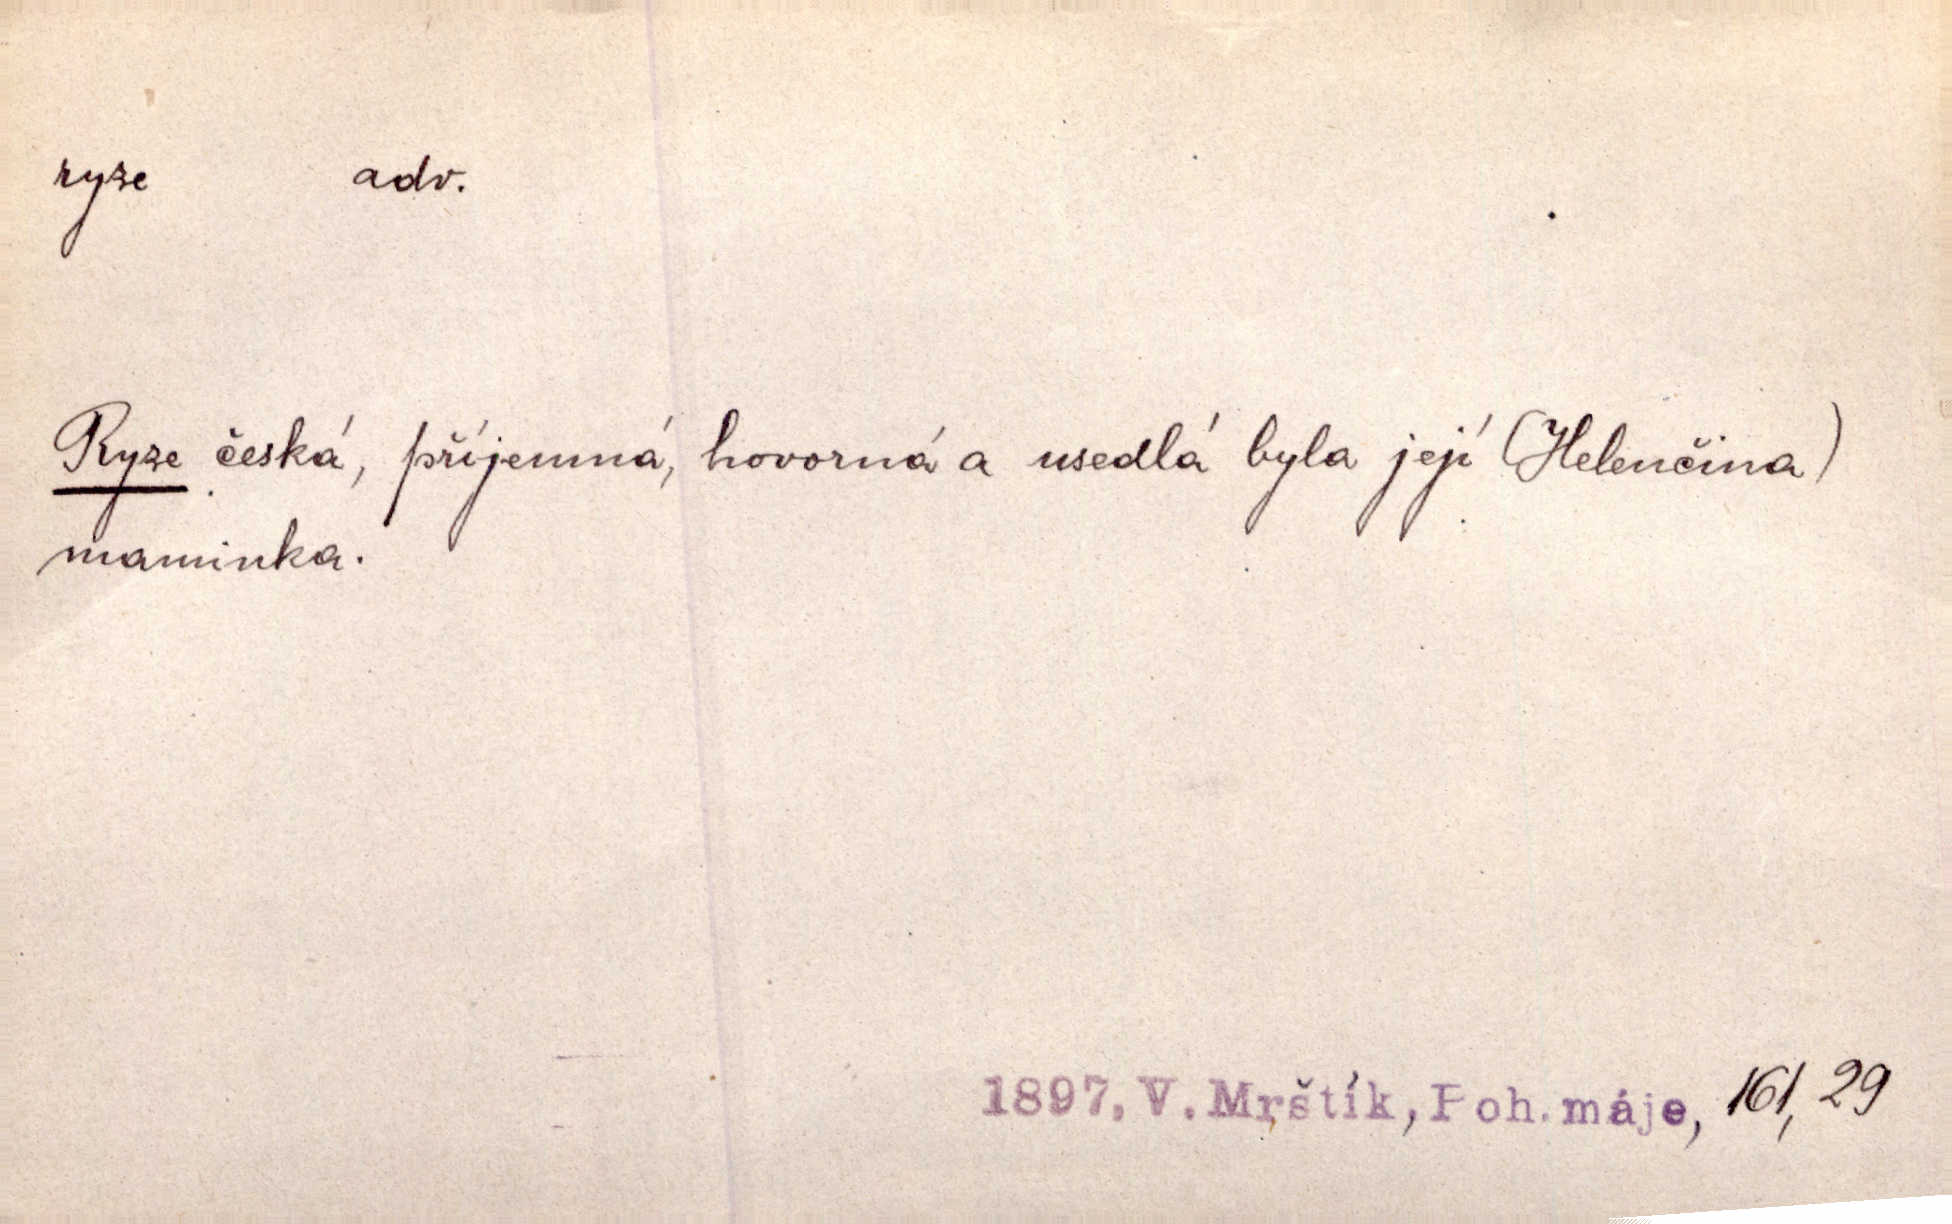 ryze adv.
Ryze česká, příjemná, hovorná a usedlá byla její (Helenčina)
maminka.
1897, V. Mrštík, Poh. máje, 161, 29